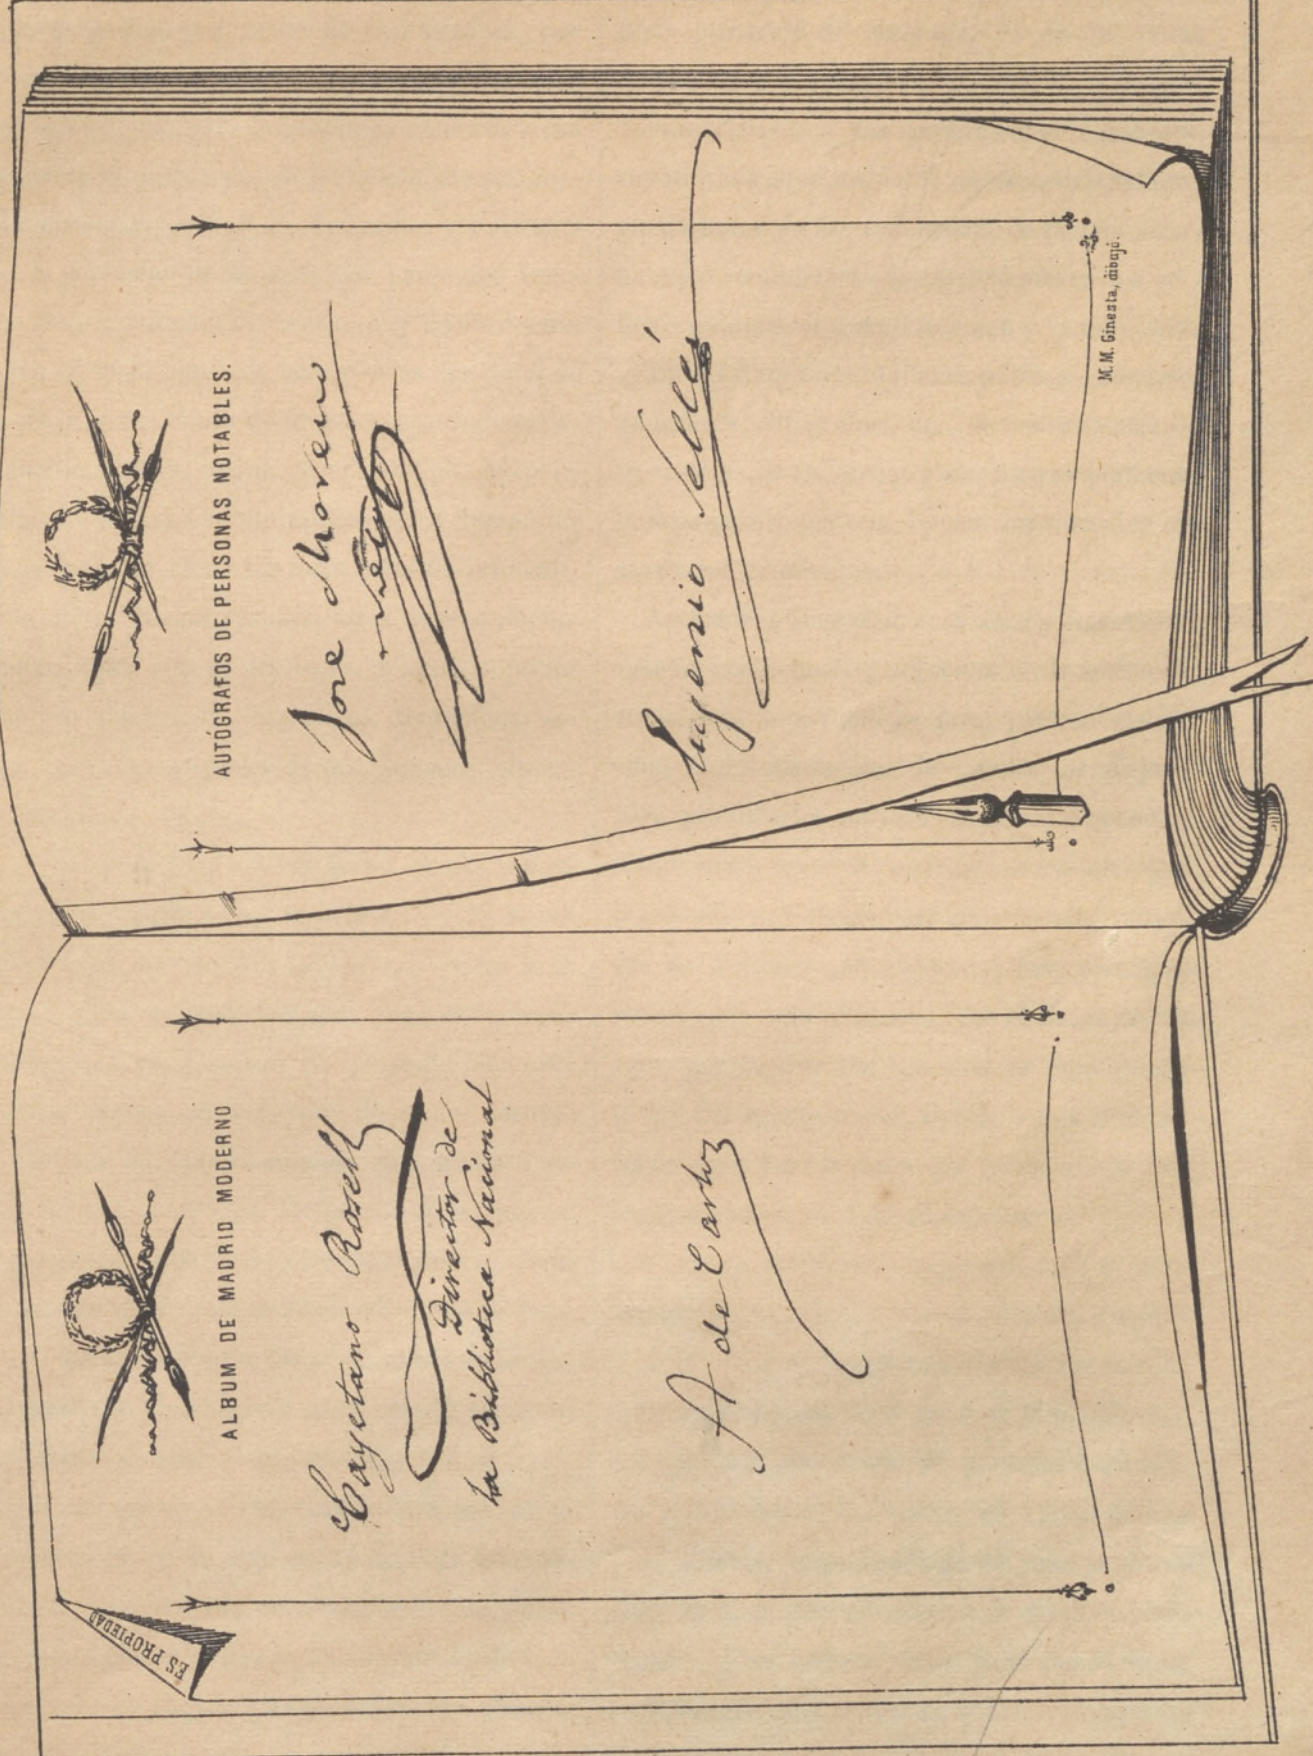 ES PROPIEDAD
ALBUM DE MADRID MODERNO
Cayetano Rosell
Director de
la Biblioteca Nacional
A de Carlos
AUTÓGRAFOS DE PERSONAS NOTABLES.
José Moreno
Eugenio Sellés
M. M. Ginesta, dibujó.